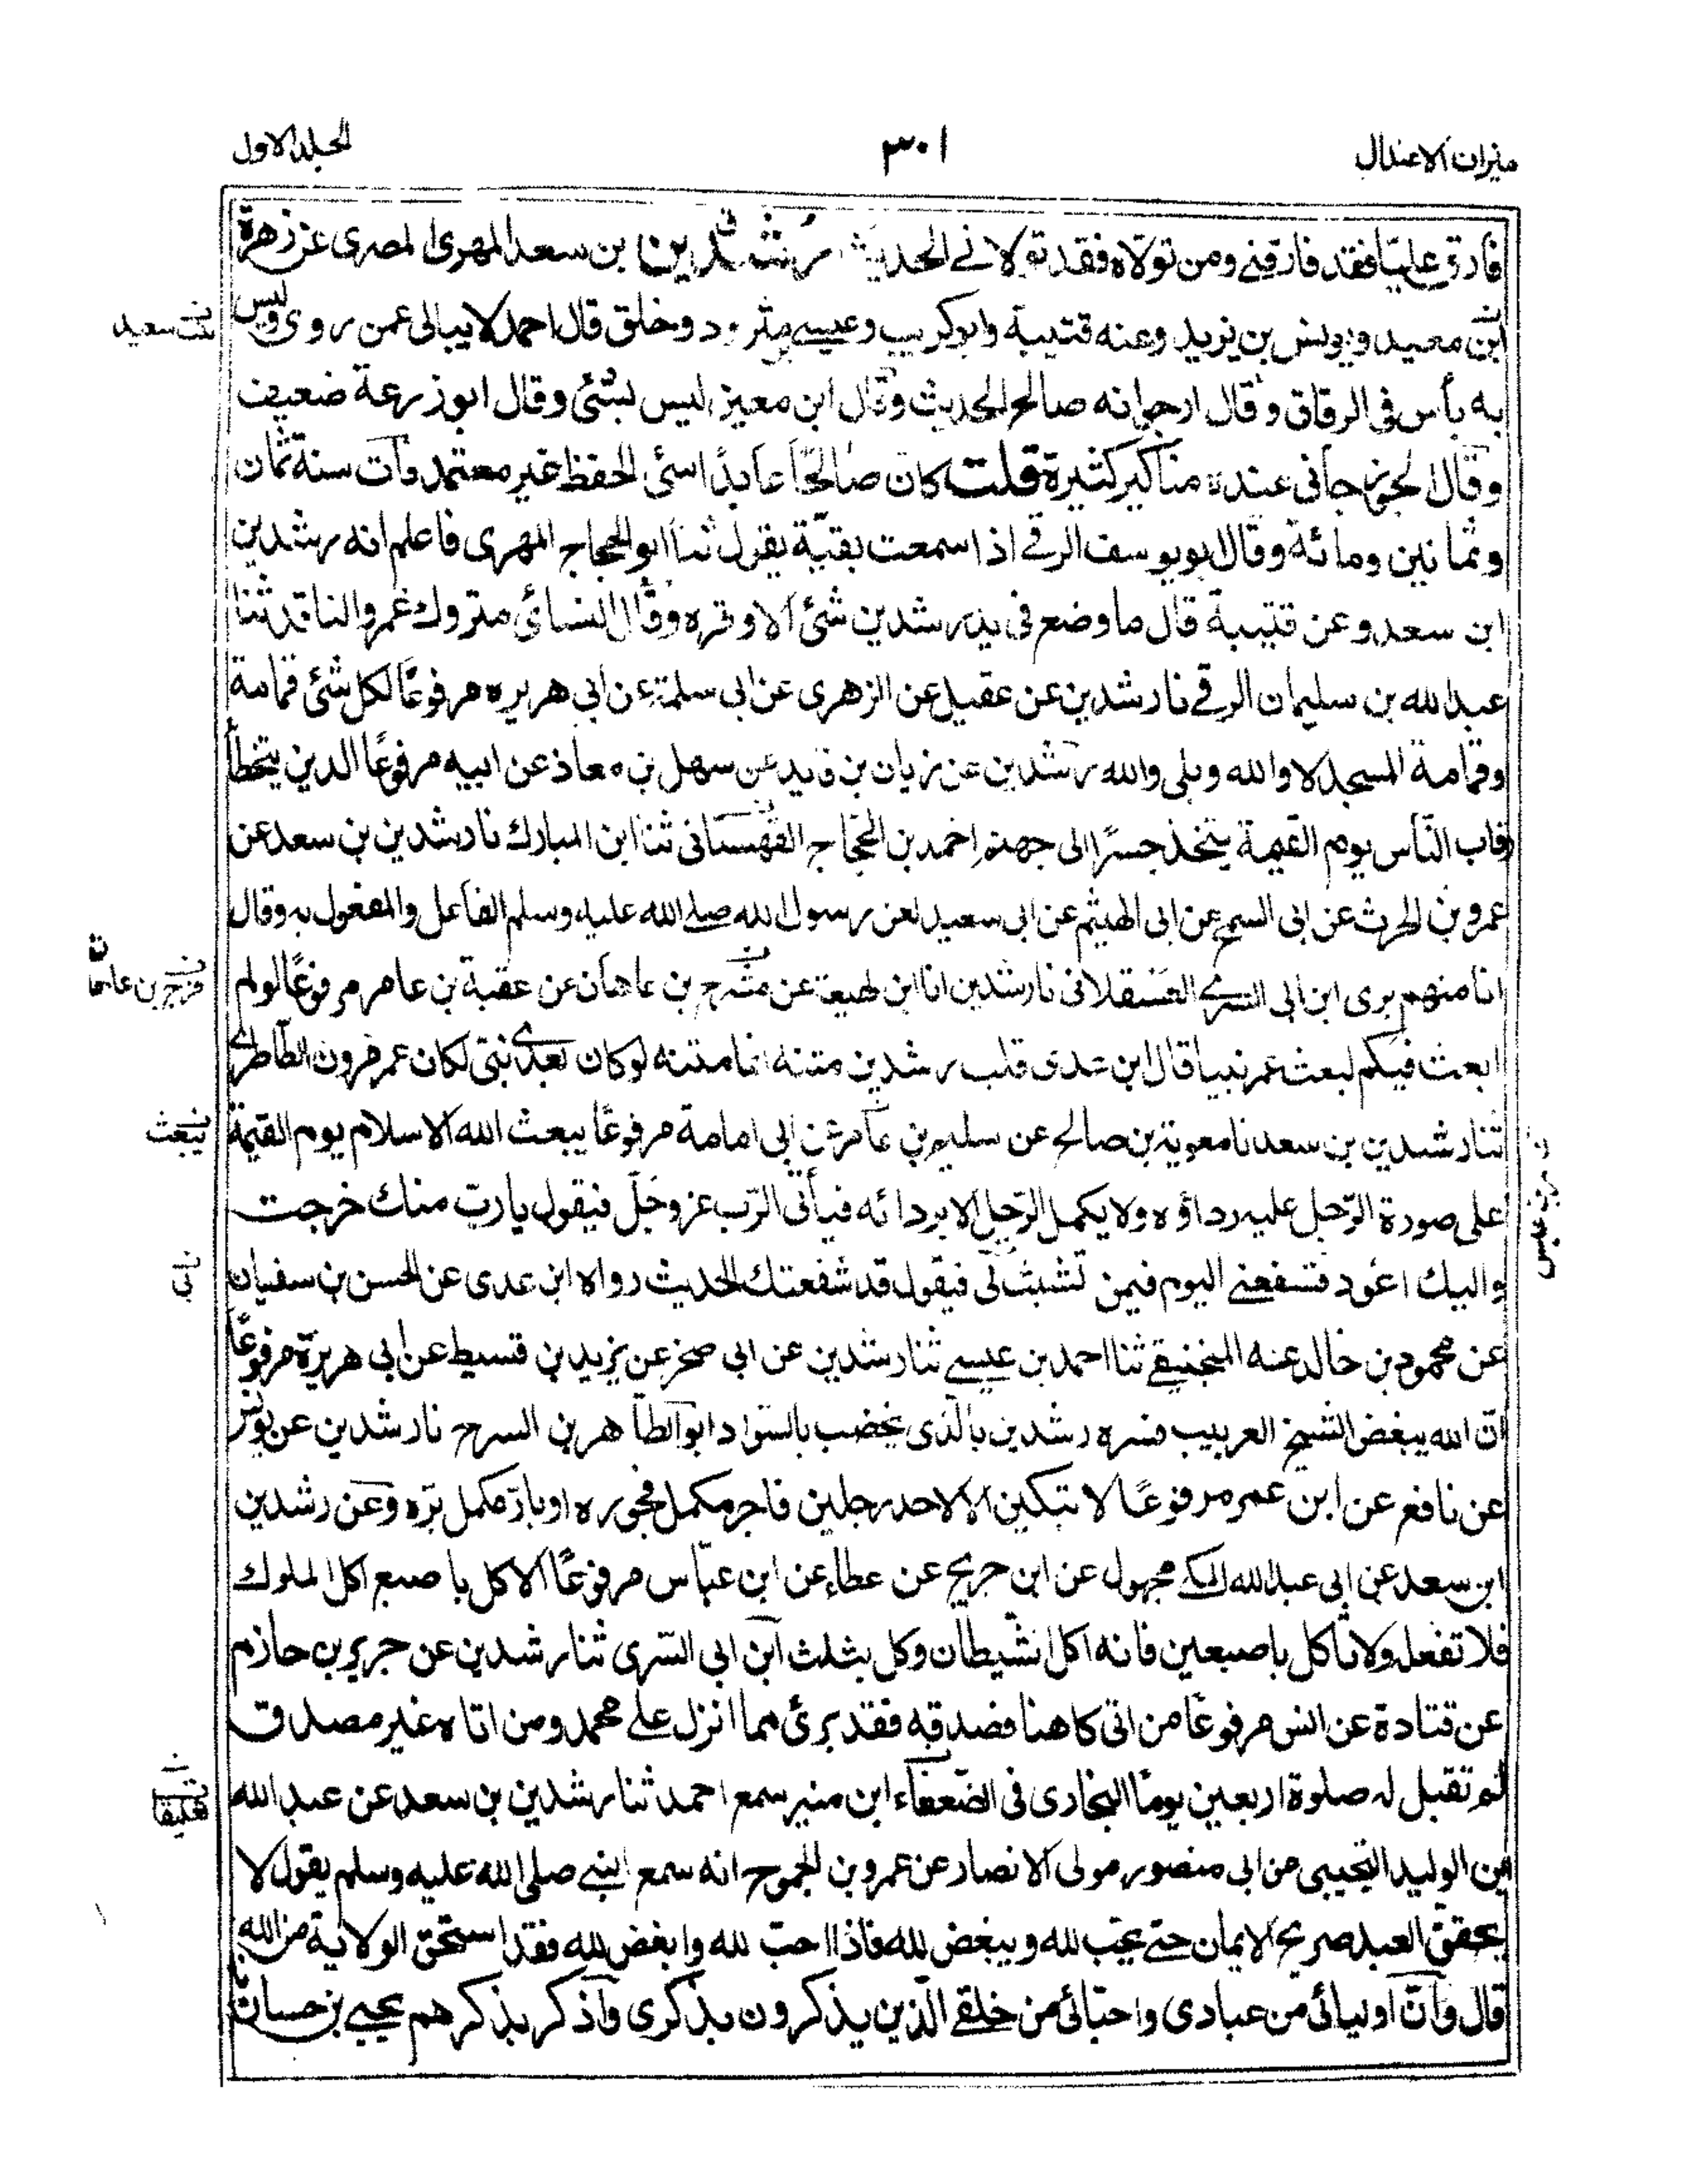 ميزان الاعتدال
٣٠١
المجلد الاول
فارق عليّا فقد فارقنى ومن تولّاه فقد تولانى الحديث رشدين بن سعد المهرى المصرى عن زهرة
ابن معبد ويونس بن يزيد وعنه قتيبة وابوكريب وعيسى مثرود وخلق قال احمد لا يبالى عمن روى وليس
به بأس فى الرقاق وقال ارجو انه صالح الحديث وقال ابن معين ليس بشئ وقال ابوزرعة ضعيف
وقال الجوزجانى عنده مناكير كثيرة قلت كان صالحًا عابدًا سئ الحفظ غير معتمد مات سنة ثمان
وثمانين ومائة وقال ابويوسف الرقى اذا سمعت بقيّة يقول ثنا ابوالحجاج المهرى فاعلم انه رشدين
ابن سعد وعن قتيبة قال ما وضع فى يد رشدين شئ الا وقره وقال النسائى متروك عمرو الناقد ثنا
عبدالله بن سليمان الرقى نا رشدين عن عقيل عن الزهرى عن ابى سلمة عن ابى هريره مرفوعًا لكل شئ قمامة
وقمامة المسجد لا والله وبلى والله رشدين عن زبان بن فايد عن سهل بن معاذ عن ابيه مرفوعًا الذين يتخطأ
رقاب النّاس يوم القيمة يتخذ جسرًا الى جهنم احمد بن الحجّاج القهستانى ثنا ابن المبارك نا رشدين بن سعد عن
عمرو بن الحرث عن ابى السمح عن ابى الهيثم عن ابى سعيد لعن رسول الله صلى الله عليه وسلم الفاعل والمفعول به وقال
انا منهم برى ابن ابى السرى العسقلانى نا رشدين انا ابن لهيعة عن مشرح بن عاهان عن عقبة بن عامر مرفوعًا لو لم
ابعث فيكم لبعث عمر نبيا قال ابن عدى قلب رشدين متنه انما متنه لو كان بعدى نبى لكان عمر مروان الطاطرى
ثنا رشدين بن سعد نا معوية بن صالح عن سليم بن عامر عن ابى امامة مرفوعًا يبعث الله الاسلام يوم القيمة
على صورة الرّجل عليه رداؤه ولا يكمل الرّجل الا بردائه فيأتى الرّب عز وجلّ فيقول يا ربّ منك خرجت
واليك اعود فشفعنى اليوم فيمن تشبث بى فيقول قد شفعتك الحديث رواه ابن عدى عن الحسن بن سفيان
عن محمود بن خالد عنه المنجنيقى ثنا احمد بن عيسى ثنا رشدين عن ابى صخر عن يزيد بن قسيط عن ابى هريرة مرفوعًا
انّ الله يبغض الشيخ الغربيب فسره رشدين بالّذى يخضب بالسّواد ابو الطاهر بن السرح نا رشدين عن يونس
عن نافع عن ابن عمر مرفوعًا لا تبكين الا لاحد رجلين فاجر مكمل فجوره او بارّ مكمل برّه وعن رشدين
ابن سعد عن ابى عبدالله المكى مجهول عن ابن جريج عن عطاء عن ابن عبّاس مرفوعًا الاكل باصبع اكل الملوك
فلا تفعل ولا تأكل باصبعين فانه اكل الشّيطان وكل بثلث ابن ابى السّرى ثنا رشدين عن جرير بن حازم
عن قتادة عن انس مرفوعًا من اتى كاهنا فصدقه فقد برئ مما انزل على محمد ومن اتاه غير مصدق
لم تقبل له صلوة اربعين يومًا البخارى فى الضّعفاء ابن منير سمع احمد ثنا رشدين بن سعد عن عبدالله
بن الوليد التجيبى عن ابى منصور مولى الانصار عن عمرو بن الجموح انه سمع النبى صلى الله عليه وسلم يقول لا
يحقق العبد صريح الايمان حتى يحبّ لله ويبغض لله فاذا احبّ لله وابغض لله فقد استحق الولاية من الله
قال وانّ اوليائى من عبادى واحبّائى من خلقى الّذين يذكرون بذكرى واذكر بذكرهم يحيى بن حسان
سعيد
يبعث
بى
تعليقا